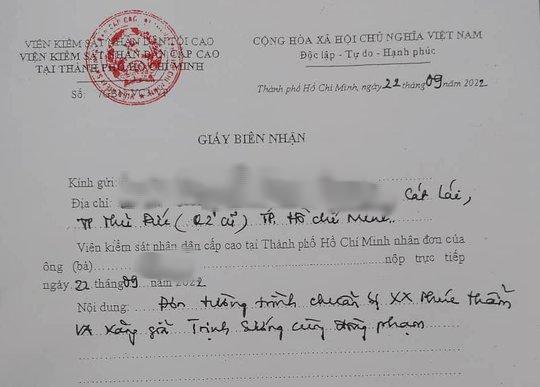 VIỆN KIỂM SÁT NHÂN DÂN TỐI CAO
VIỆN KIỂM SÁT NHÂN DÂN CẤP CAO
TẠI THÀNH PHỐ HỒ CHÍ MINH
Số:
CỘNG HÒA XÃ HỘI CHỦ NGHĨA VIỆT NAM
Độc lập - Tự do - Hạnh phúc
Thành phố Hồ Chí Minh, ngày 22 tháng 09 năm 2022
GIẤY BIÊN NHẬN
Kính gửi:
Địa chỉ: Cát Lái,
TP Thủ Đức (Q2 cũ) TP. Hồ Chí Minh.
Viện kiểm sát nhân dân cấp cao tại Thành phố Hồ Chí Minh nhân đơn của
ông (bà) nộp trực tiếp
ngày 22 tháng 09 năm 2022
Nội dung: Đơn tường trình chuẩn bị XX Phúc thẩm
VA xăng giả Trịnh Sướng cùng đồng phạm